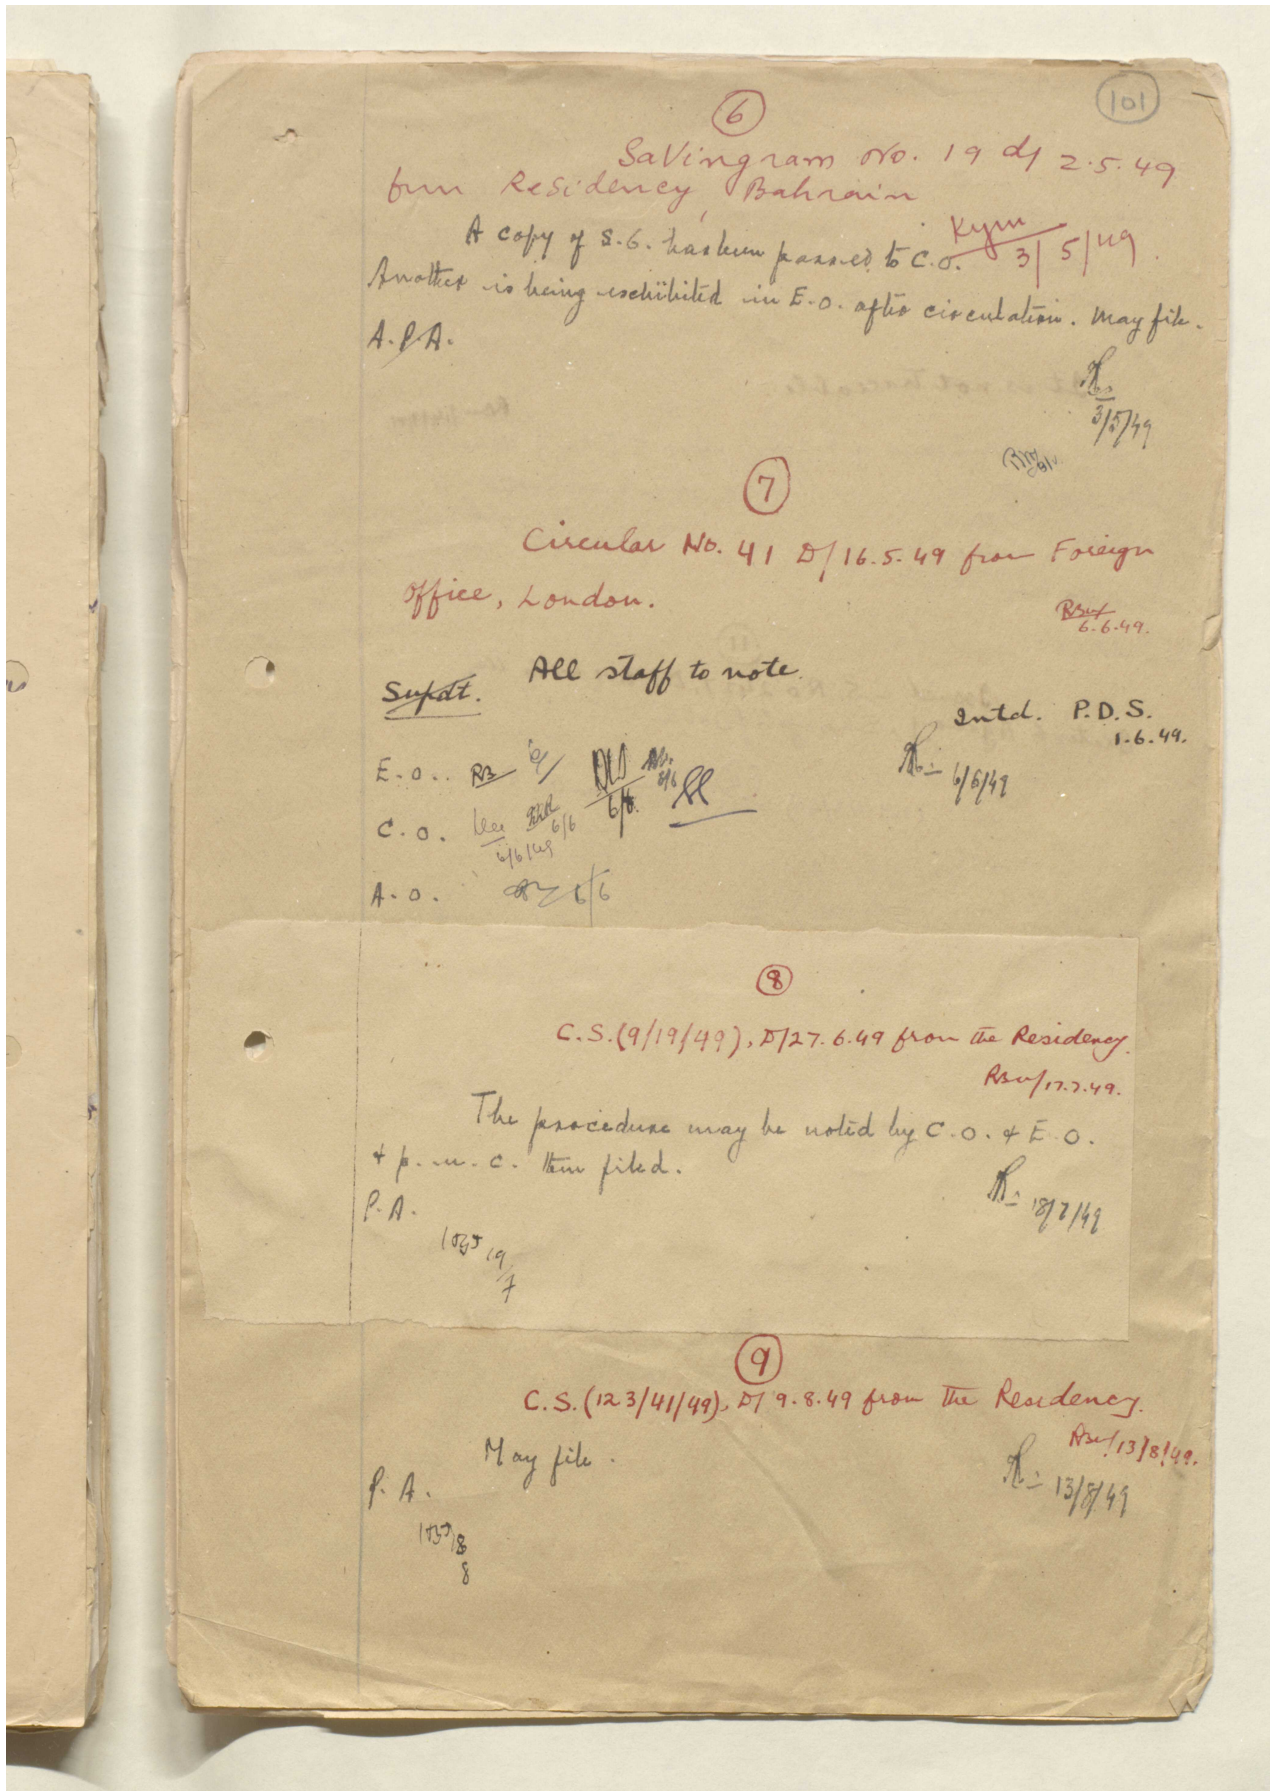 101
6
Savingram No. 19 d/ 2.5.49
from Residency, Bahrain
3/5/49
A copy of S.G. has been passed to C.O.
Another is being exhibited in E.O. after circulation. May file.
A.P.A.
3/5/49
7
Circular No. 41 D/16.5.49 from Foreign
Office, London.
6.6.49.
All staff to note.
Supdt.
Intd. P.D.S.
1.6.49.
6/6/49
E.O.
6/6.
8/6
C.O.
6/6
6/6/49
A.O. 6/6
8
C.S.(9/19/49), D/27.6.49 from the Residency.
17.7.49.
The procedure may be noted by C.O. & E.O.
& p.u.c. then filed.
18/7/49
P.A.
19/7
9
C.S.(123/41/49), D/9.8.49 from the Residency.
13/8/49.
May file.
13/8/49
P.A.